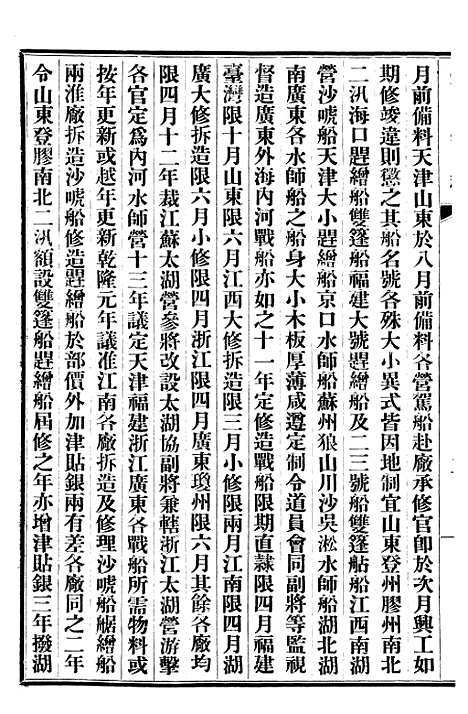 月前備料天津山東於八月前備料各營駕船赴廠承修官卽於次月興工如
期修竣違則懲之其船名號各殊大小異式皆因地制宜山東登州膠州南北
二汛海口趕繒船雙篷船福建大號趕繒船及二三號船雙篷䑩船江西南湖
營沙唬船天津大小趕繒船京口水師船蘇州狼山川沙吳淞水師船湖北湖
南廣東各水師船之船身大小木板厚薄咸遵定制令道員會同副將等監視
督造廣東外海內河戰船亦如之十一年定修造戰船限期直隸限四月福建
臺灣限十月山東限六月江西大修拆造限三月小修限兩月江南限四月湖
廣大修拆造限六月小修限四月浙江限四月廣東瓊州限六月其餘各廠均
限四月十二年裁江蘇太湖營參將改設太湖協副將兼轄浙江太湖營游擊
各官定爲內河水師營十三年議定天津福建浙江廣東各戰船所需物料或
按年更新或越年更新乾隆元年議准江南各廠拆造及修理沙唬船䑼繒船
兩淮廠拆造沙唬船修造趕繒船於部價外加津貼銀兩有差各廠同之二年
令山東登膠南北二汛額設雙篷船趕繒船屆修之年亦增津貼銀三年撥湖